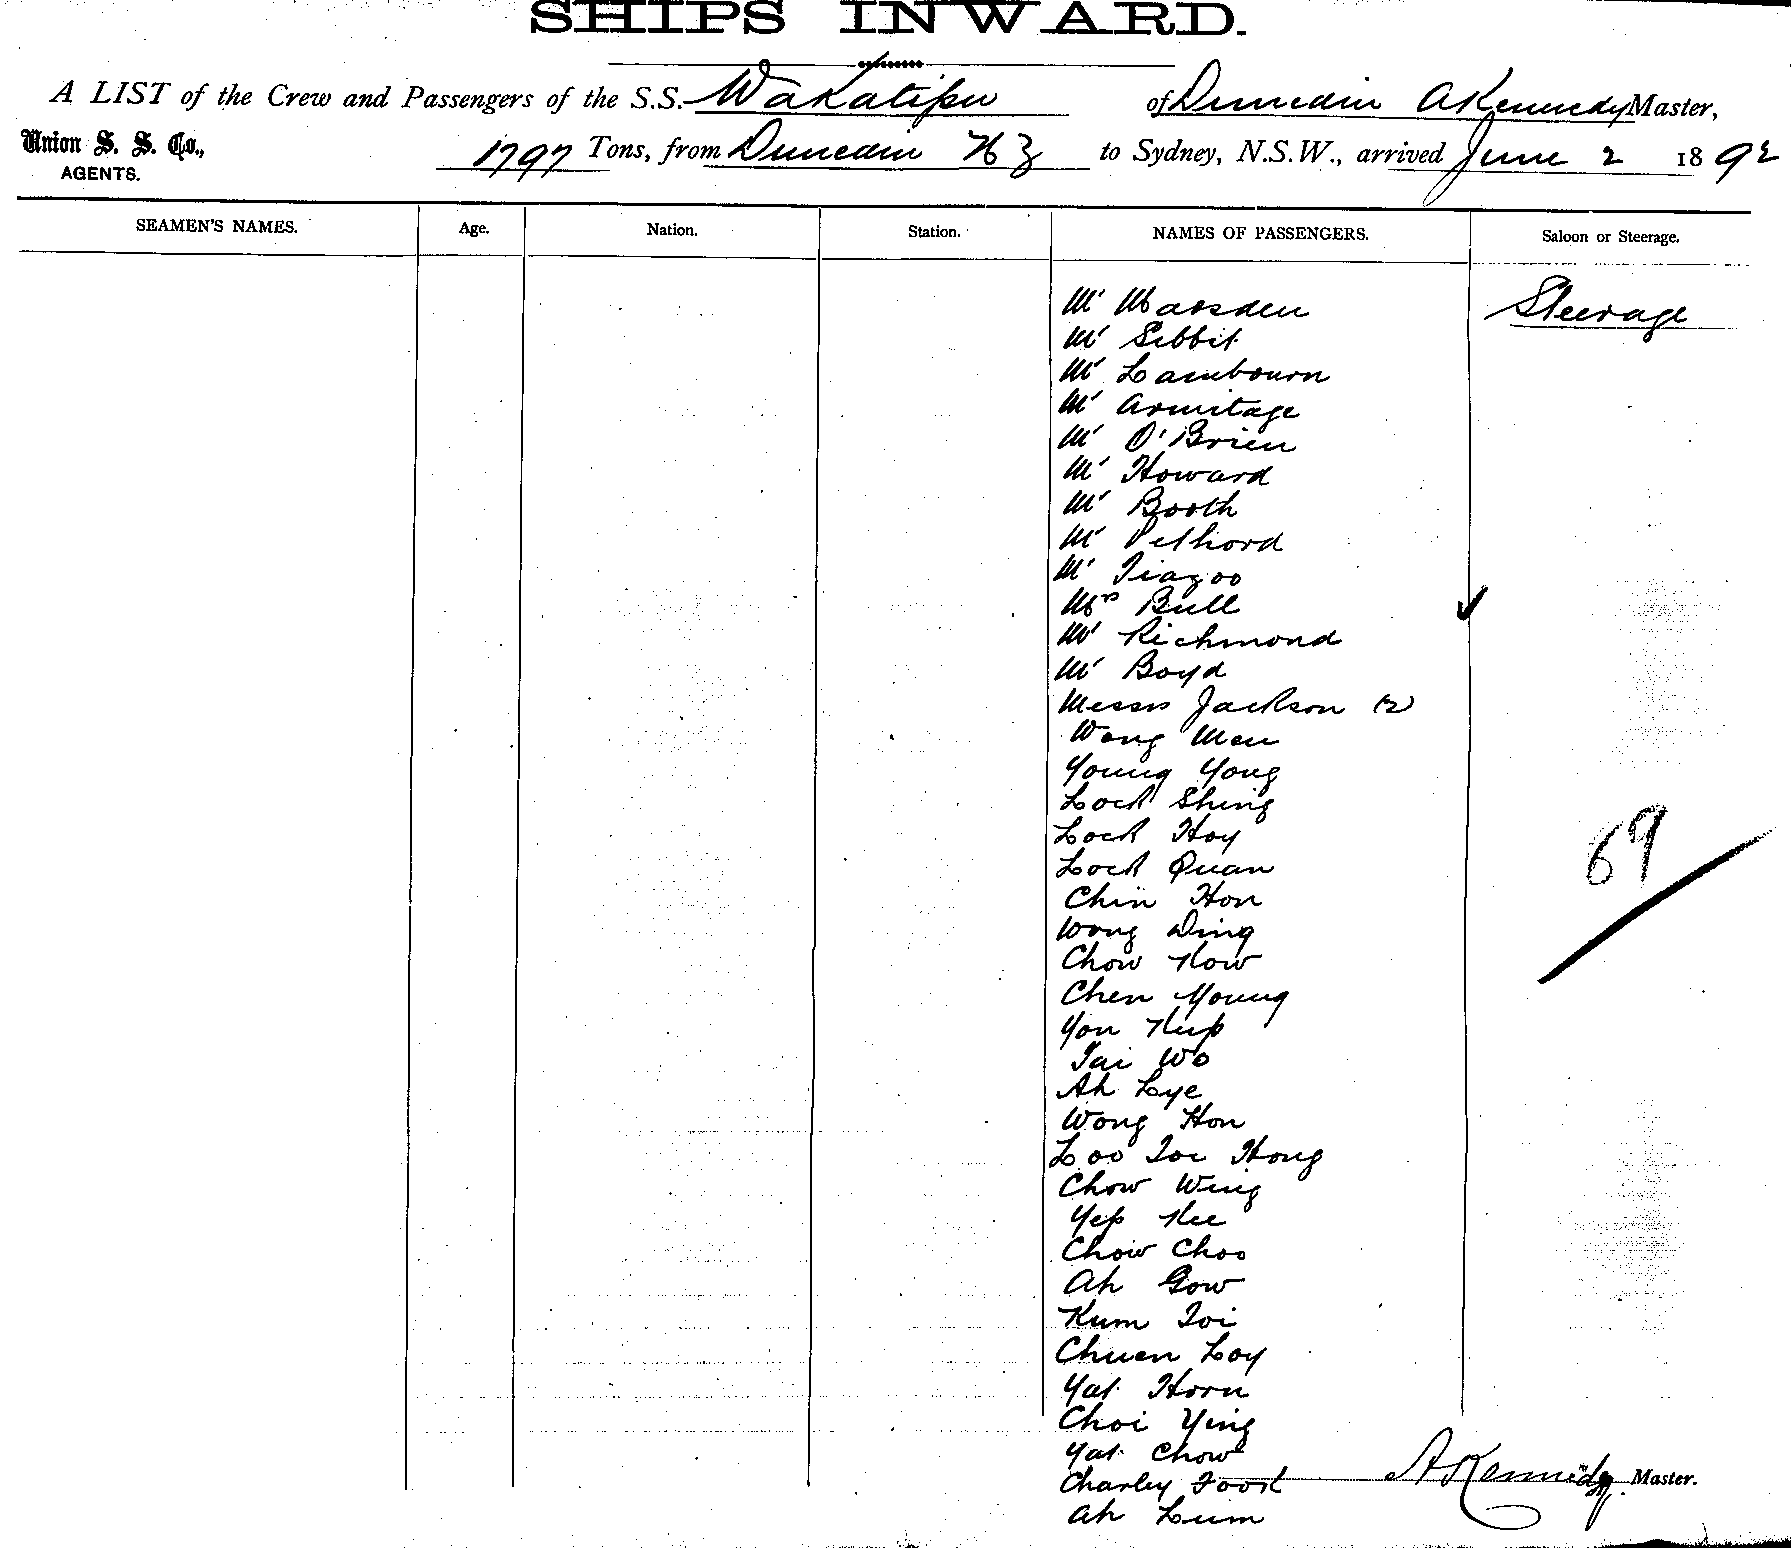 SHIPS INWARD.
A LIST of the Crew and Passengers of the S.S. Wakatipu of Dunedin A Kennedy Master,
Union S. S. Co.,
AGENTS.
1797 Tons, from Dunedin N Z to Sydney, N.S.W., arrived June 2 1892
SEAMEN'S NAMES. Age. Nation. Station. NAMES OF PASSENGERS. Saloon or Steerage.
Mr Marsden Steerage
Mr Sibbit
Mr Lambourn
Mr Armitage
Mr O'Brien
Mr Howard
Mr Booth
Mr Pethord
Mr
Mrs Bull
Mr Richmond
Mr Boyd
Messrs Jackson (2)
Wong Men
Young Yong
Lock Shing
Lock Hoy
69
Lock Quan
Chin Hon
Wong Ding
Chow How
Chen Moung
You Kup
Tai Wo
Ah Lye
Wong Hon
Loo Toi Hong
Chow Wing
Yep Kee
Chow Choo
Ah Gow
Kum Toi
Chuen Loy
Yat Horn
Choi Ying
Yat Chow
A Kennedy Master.
Charley Fook
Ah Lum